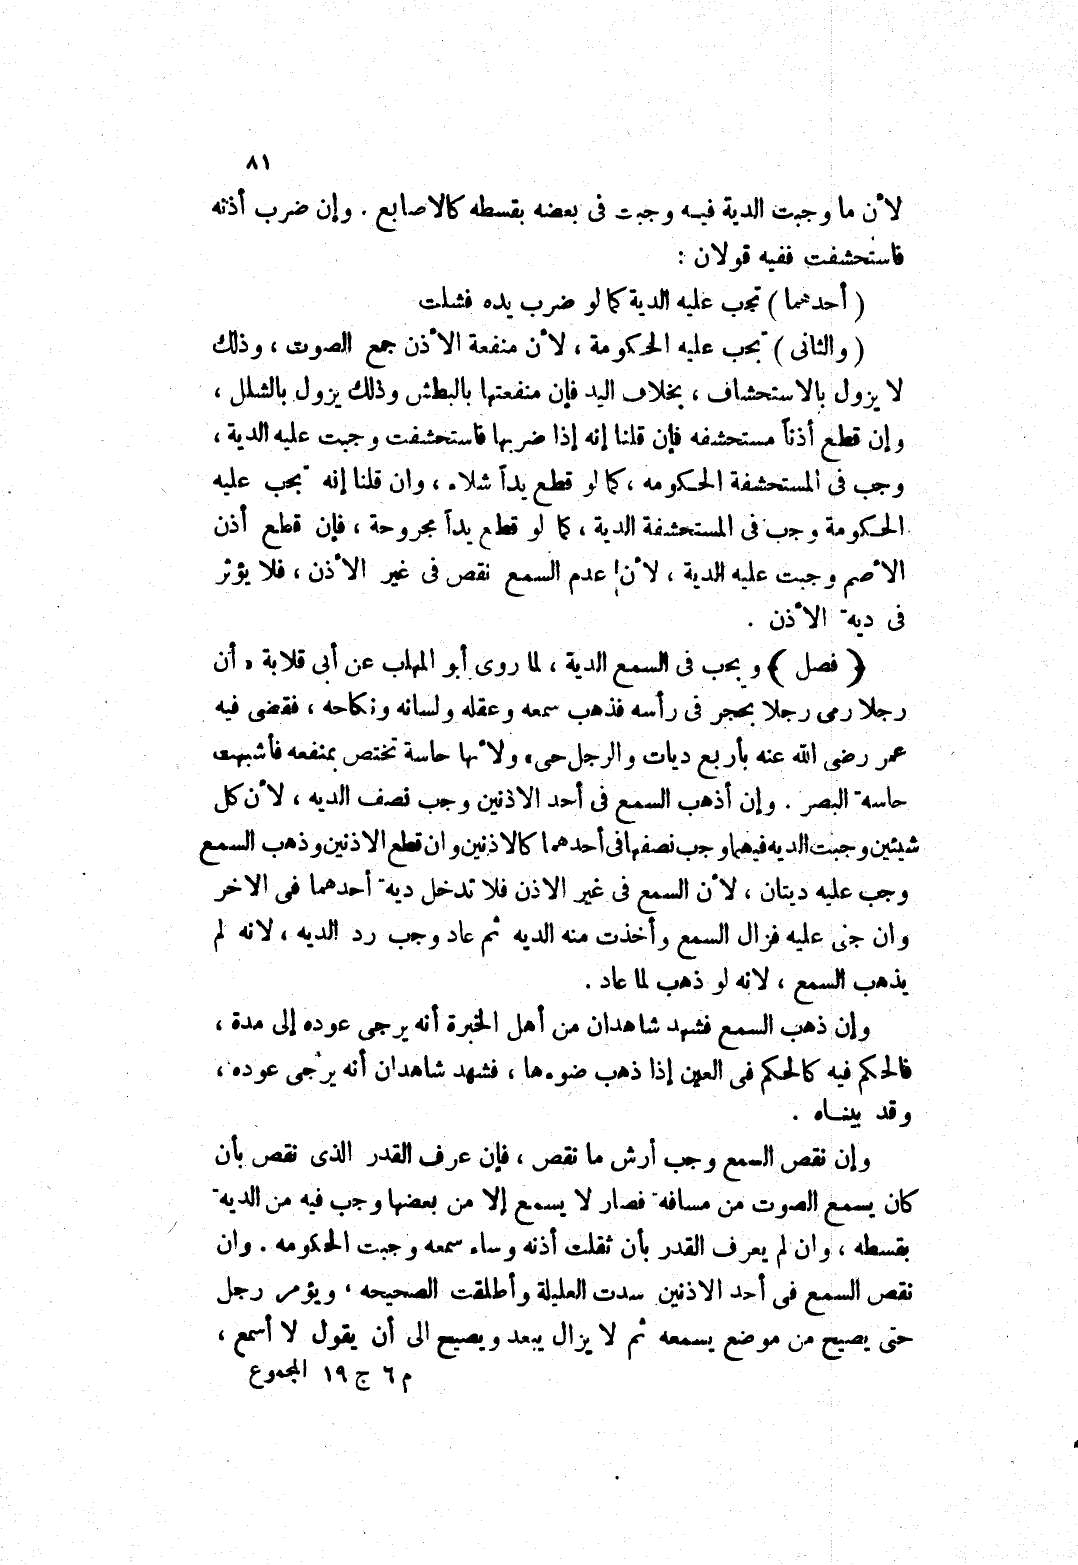 ٨١
لأن ما وجبت الدية فيه وجبت فى بعضه بقسطه كالاصابع . وإن ضرب أذنه
فاستحشفت ففيه قولان :
( أحدهما ) تجب عليه الدية كما لو ضرب يده فشلت
( والثانى ) تجب عليه الحكومة ، لأن منفعة الأذن جمع الصوت ، وذلك
لا يزول بالاستحشاف ، بخلاف اليد فإن منفعتها بالبطش وذلك يزول بالشلل ،
وإن قطع أذناً مستحشفه فإن قلنا إنه إذا ضربها فاستحشفت وجبت عليه الدية ،
وجب فى المستحشفة الحكومه ، كما لو قطع يداً شلاء ، وان قلنا إنه تجب عليه
الحكومة وجب فى المستحشفة الدية ، كما لو قطع يداً مجروحة ، فإن قطع أذن
الأصم وجبت عليه الدية ، لأن عدم السمع نقص فى غير الأذن ، فلا يؤثر
فى دية الأذن .
﴿ فصل ﴾ ويجب فى السمع الدية ، لما روى أبو المهلب عن أبى قلابة « أن
رجلا رمى رجلا بحجر فى رأسه فذهب سمعه وعقله ولسانه ونكاحه ، فقضى فيه
عمر رضى الله عنه بأربع ديات والرجل حى » ولأنها حاسة تختص بمنفعه فأشبهت
حاسة البصر . وإن أذهب السمع فى أحد الاذنين وجب نصف الديه ، لأن كل
شيئين وجبت الديه فيهما وجب نصفها فى أحدهما كالاذنين وان قطع الاذنين وذهب السمع
وجب عليه ديتان ، لأن السمع فى غير الاذن فلا تدخل دية أحدهما فى الاخر
وان جنى عليه فزال السمع وأخذت منه الديه ثم عاد وجب رد الديه ، لانه لم
يذهب السمع ، لانه لو ذهب لما عاد .
وإن ذهب السمع فشهد شاهدان من أهل الخبرة أنه يرجى عوده إلى مدة ،
فالحكم فيه كالحكم فى العين إذا ذهب ضوءها ، فشهد شاهدان أنه يرجى عوده ،
وقد بيناه .
وإن نقص السمع وجب أرش ما نقص ، فإن عرف القدر الذى نقص بأن
كان يسمع الصوت من مسافة فصار لا يسمع إلا من بعضها وجب فيه من الدية
بقسطه ، وان لم يعرف القدر بأن ثقلت أذنه وساء سمعه وجبت الحكومه . وان
نقص السمع فى أحد الاذنين سدت العليلة وأطلقت الصحيحه ، ويؤمر رجل
حتى يصيح من موضع يسمعه ثم لا يزال يبعد ويصيح الى أن يقول لا أسمع ،
م ٦ ج ١٩ المجموع